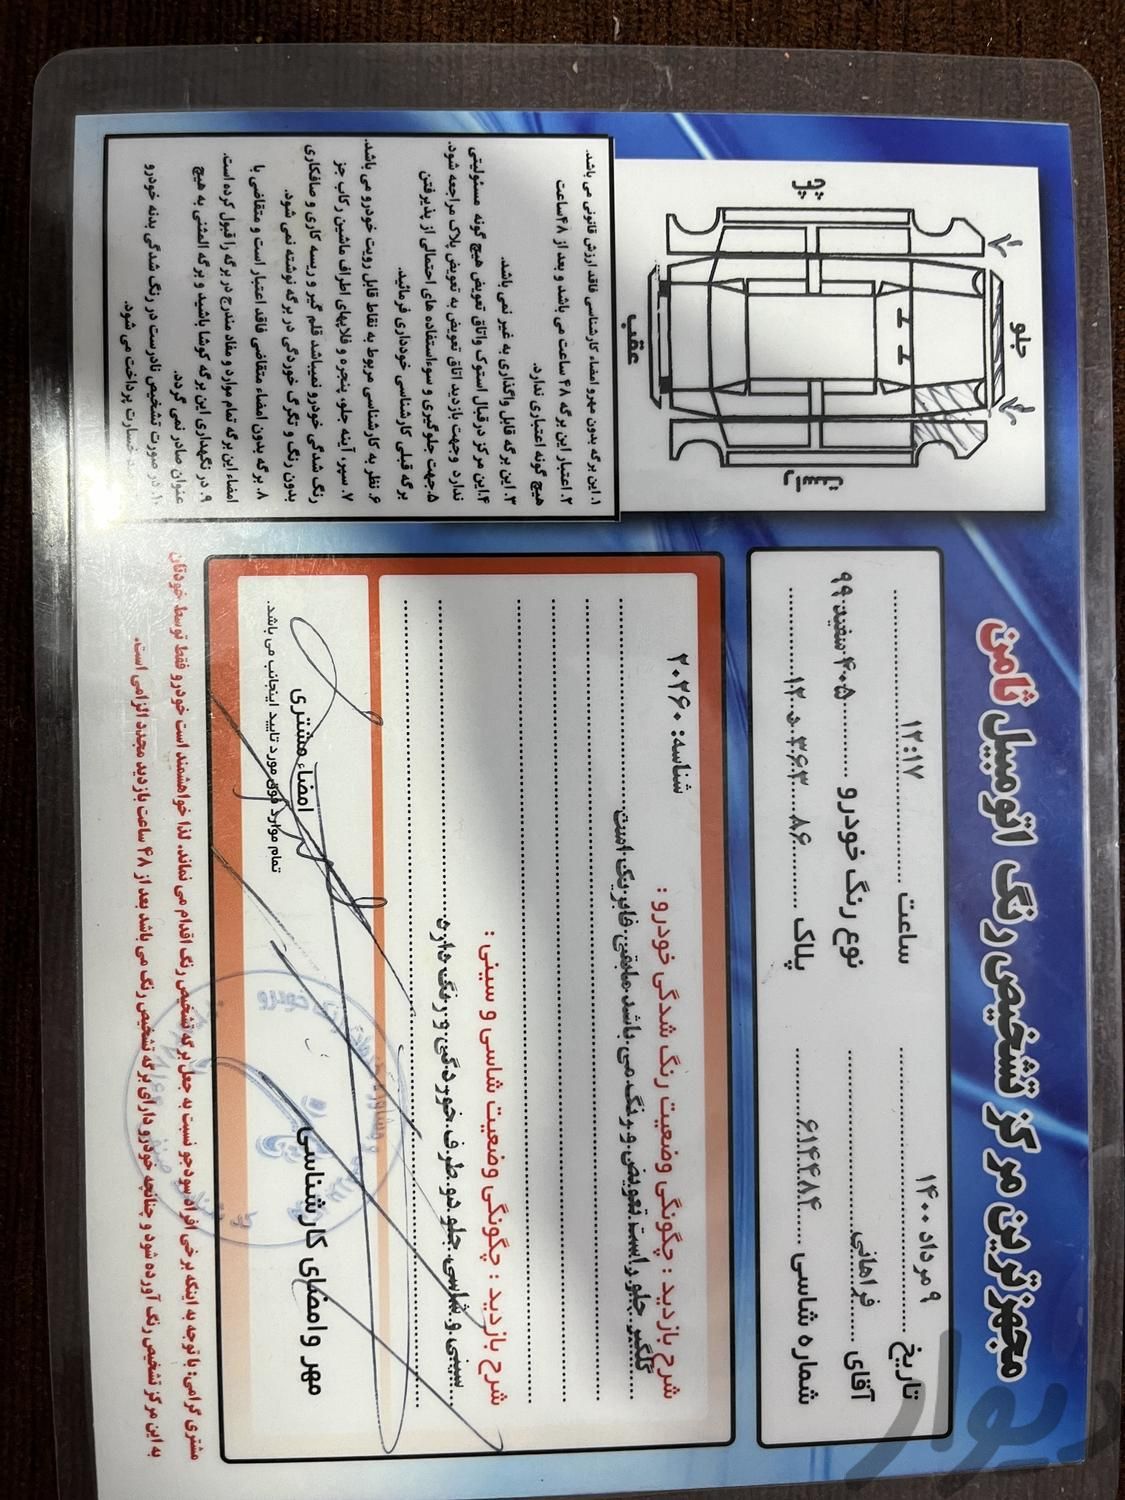 مجهزترین مرکز تشخیص رنگ اتومبیل ثامن
تاریخ ۹ مرداد ۱۴۰۰ ساعت ۱۲:۱۷
آقای فراهانی نوع رنگ خودرو ۴۰۵ سفید ۹۹
شماره شاسی ۶۱۴۴۸۴ پلاک ۸۶
جلو
چپ
راست
عقب
شرح بازدید : چگونگی وضعیت رنگ شدگی خودرو : شناسه: ۲۰۲۶۰
گلگیر جلو راست تعویض و رنگ می باشد مابقی فابریک است
شرح بازدید : چگونگی وضعیت شاسی و سینی :
سینی و شاسی جلو دو طرف خوردگی و رنگ دارد
مهر و امضای کارشناسی
امضاء مشتری
تمام موارد فوق مورد تایید اینجانب می باشد.
۱. این برگه بدون مهر و امضاء کارشناسی فاقد ارزش قانونی می باشد.
۲. اعتبار این برگه ۴۸ ساعت می باشد و بعد از ۴۸ ساعت
هیچ گونه اعتباری ندارد.
۳. این برگه قابل واگذاری به غیر نمی باشد.
۴. این مرکز در قبال استوک و اتاق تعویض هیچ گونه مسئولیتی
ندارد وجهت بازدید اتاق تعویض به تعویض پلاک مراجعه شود.
۵. جهت جلوگیری و سوء استفاده های احتمالی از پذیرفتن
برگه قبلی کارشناسی خودداری فرمائید.
۶. نظر به کارشناسی مربوط به نقاط قابل رویت خودرو می باشد.
۷. سپر، آینه جلو، پنجره و قلابهای اطراف ماشین رکاب جز
رنگ شدگی خودرو نمیباشد قلم گیر و ریسه کاری و صافکاری
بدون رنگ و تگرگ خوردگی در برگه نوشته نمی شود.
۸. برگه بدون امضاء متقاضی فاقد اعتبار است و متقاضی با
امضاء این برگه تمام موارد و مفاد مندرج در برگه را قبول کرده است.
۹. در نگهداری این برگه کوشا باشید و برگه المثنی به هیچ
عنوان صادر نمی گردد.
۱۰. در صورت تشخیص نادرست در رنگ شدگی بدنه خودرو
خسارت پرداخت می شود.
مشتری گرامی: با توجه به اینکه برخی افراد سودجو نسبت به جعل برگه تشخیص رنگ اقدام می نماند. لذا خواهشمند است خودرو فقط توسط خودتان
به این مرکز تشخیص رنگ آورده شود و چنانچه خودرو دارای برگه تشخیص رنگ می باشد بعد از ۴۸ ساعت بازدید مجدد الزامی است.
دیوار